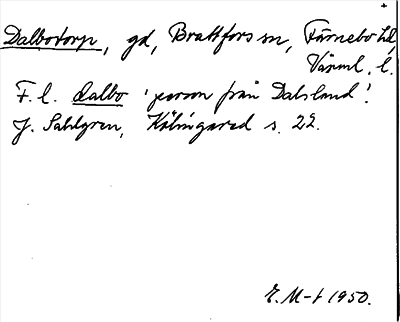 Dalbotorp, gd, Brattfors sn, Färnebo hd,
Värml. l.
F. l. dalbo 'person från Dalsland'.
J. Sahlgren, Kölingared s. 22.
E. M-t 1950.